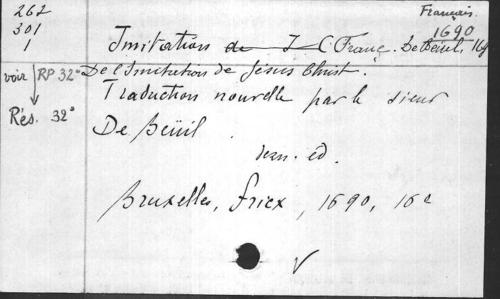 262
301
1
Français.
1690
Imitation de J C Franç. De Beüil, 16
voir RP 32° De l'Imitation de Jésus Christ.
Traduction nouvelle par le sieur
Rés. 32°
De Beüil
ed.
Bruxelles, fricx, 1690, 16